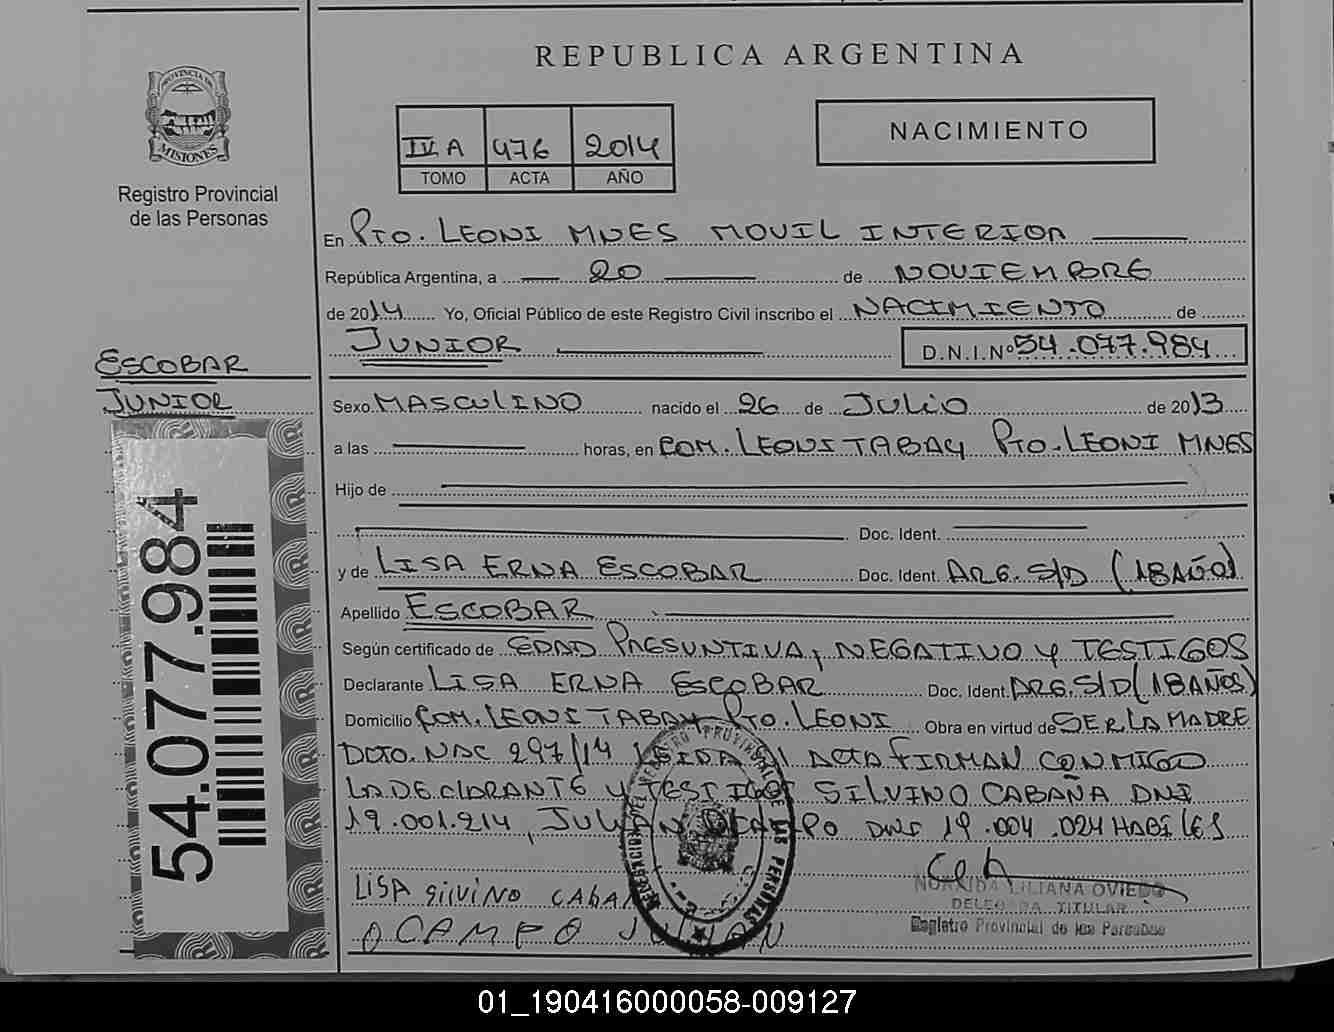 REPUBLICA ARGENTINA
PROVINCIA DE
MISIONES
Registro Provincial
de las Personas
IV A 476 2014
TOMO ACTA AÑO
NACIMIENTO
En Pto. LEONI MNES MOVIL INTERIOR
República Argentina, a 20 de NOVIEMBRE
de 2014 Yo, Oficial Público de este Registro Civil inscribo el NACIMIENTO de
JUNIOR D.N.I.Nº 54.077.984
ESCOBAR
JUNIOR
54.077.984
Sexo MASCULINO nacido el 26 de JULIO de 2013
a las horas, en COM. LEONI TABAY Pto. LEONI MNES
Hijo de
Doc. Ident.
y de LISA ERNA ESCOBAR Doc. Ident. ARG. S/D (18 AÑO)
Apellido ESCOBAR
Según certificado de EDAD PRESUNTIVA, NEGATIVO Y TESTIGOS
Declarante LISA ERNA ESCOBAR Doc. Ident. ARG. S/D (18 AÑOS)
Domicilio COM. LEONI TABAY Pto. LEONI Obra en virtud de SER LA MADRE
DCTO. NAC 297/14 LEIDA EL ACTA FIRMAN CONMIGO
LA DECLARANTE Y TESTIGOS SILVINO CABAÑA DNI
19.001.214, JULIAN OCAMPO DNI 19.004.024 HABILES
LISA SILVINO CABA
OCAMPO JULIAN
NORAIDA LILIANA OVIEDO
DELEGADA TITULAR
Registro Provincial de las Personas
01_190416000058-009127